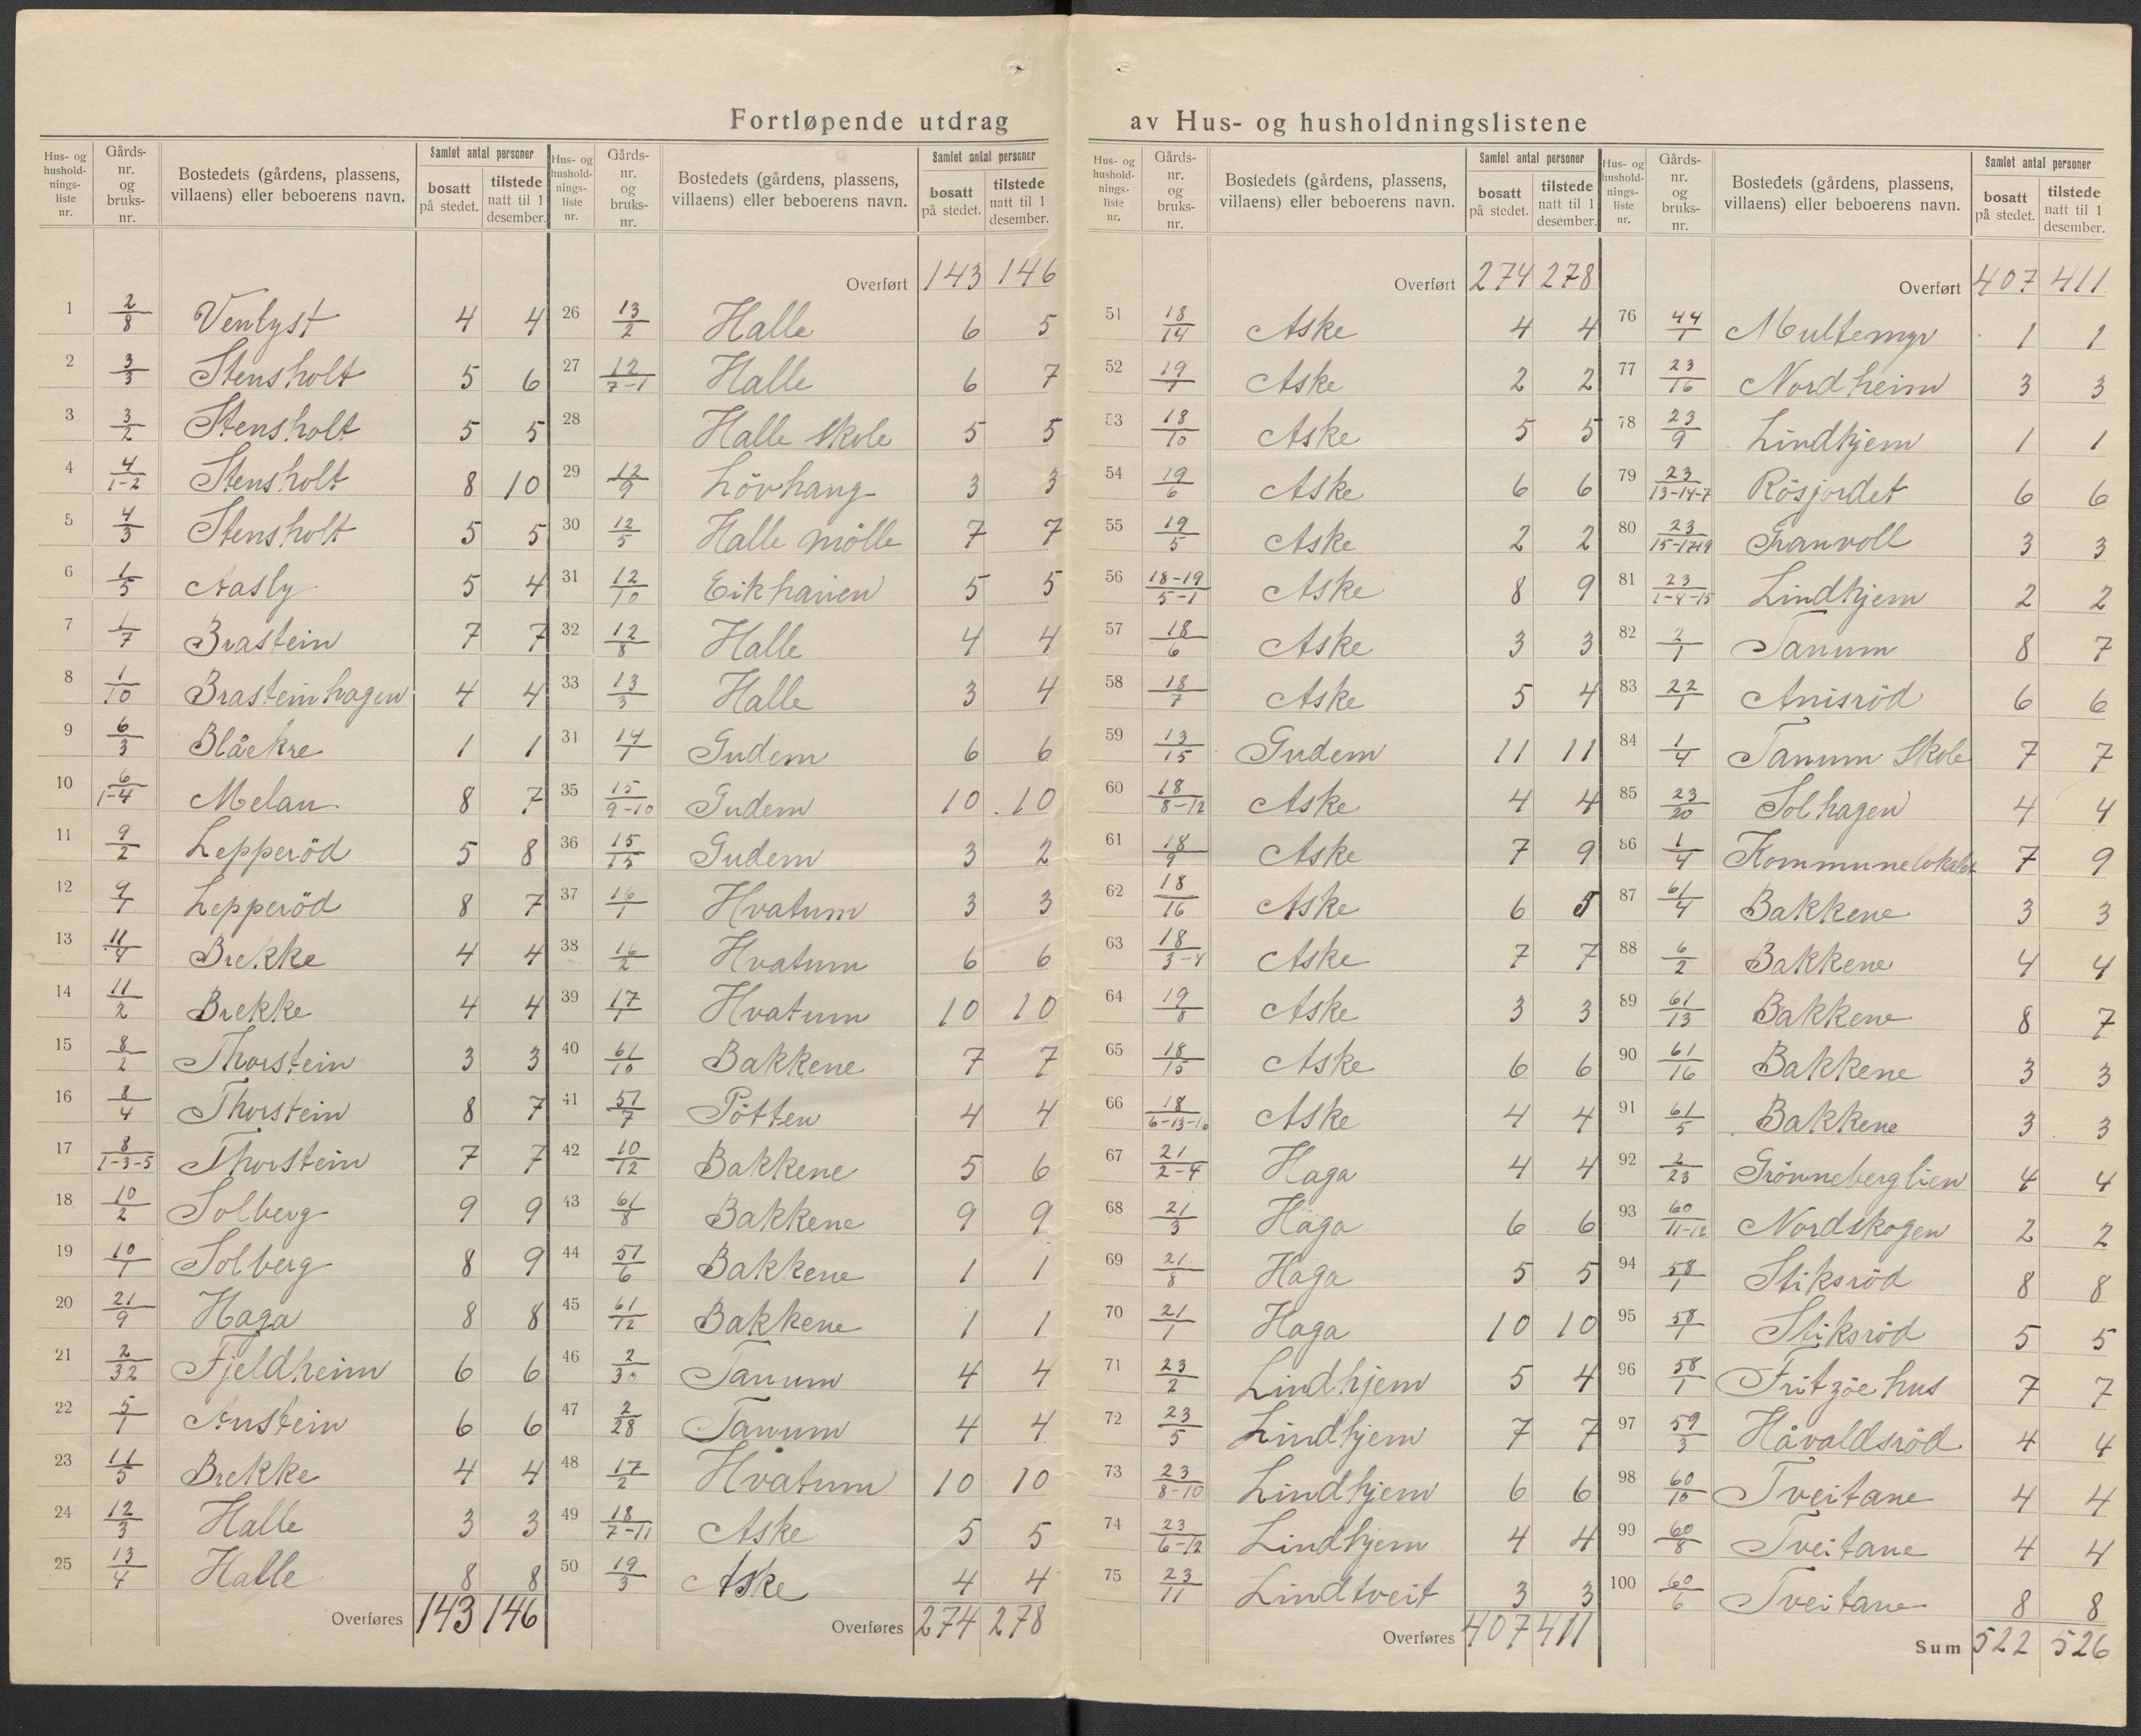 Fortløpende utdrag av Hus- og husholdningslistene
Hus- og husholdningsliste nr. | Gårdsnr. og bruksnr. | Bostedets (gårdens, plassens, villaens) eller beboerens navn. | Samlet antal personer | bosatt på stedet. | tilstede natt til 1 desember.
1 2/8 Venlyst 4 4
2 3/3 Stensholt 5 6
3 3/2 Stensholt 5 5
4 4/1-2 Stensholt 8 10
5 4/3 Stensholt 5 5
6 1/5 Aasly 5 4
7 1/7 Brastein 7 7
8 1/10 Brasteinhagen 4 4
9 6/3 Blåekre 1 1
10 6/1-4 Melau 8 7
11 9/2 Lepperöd 5 8
12 9/1 Lepperöd 8 7
13 11/4 Brekke 4 4
14 11/2 Brekke 4 4
15 8/2 Thorstein 3 3
16 8/4 Thorstein 8 7
17 8/1-3-5 Thorstein 7 7
18 10/2 Solberg 9 9
19 10/1 Solberg 8 9
20 21/9 Haga 8 8
21 2/32 Fjeldheim 6 6
22 5/1 Austein 6 6
23 11/5 Brekke 4 4
24 12/3 Halle 3 3
25 13/4 Halle 8 8
Overføres 143 146
Hus- og husholdningsliste nr. | Gårdsnr. og bruksnr. | Bostedets (gårdens, plassens, villaens) eller beboerens navn. | Samlet antal personer | bosatt på stedet. | tilstede natt til 1 desember.
Overført 143 146
26 13/2 Halle 6 5
27 12/7-1 Halle 6 7
28 Halle skole 5 5
29 12/9 Lövhaug 3 3
30 12/5 Halle mölle 7 7
31 12/10 Eikhauen 5 5
32 12/8 Halle 4 4
33 13/3 Halle 3 4
34 14/1 Gudem 6 6
35 15/9-10 Gudem 10 10
36 15/15 Gudem 3 2
37 16/1 Hvatum 3 3
38 16/2 Hvatum 6 6
39 17/1 Hvatum 10 10
40 61/10 Bakkene 7 7
41 57/7 Pötten 4 4
42 10/12 Bakkene 5 6
43 61/8 Bakkene 9 9
44 57/6 Bakkene 1 1
45 61/12 Bakkene 1 1
46 2/30 Tanum 4 4
47 2/28 Tanum 4 4
48 17/2 Hvatum 10 10
49 18/7-11 Aske 5 5
50 19/3 Aske 4 4
Overføres 274 278
Hus- og husholdningsliste nr. | Gårdsnr. og bruksnr. | Bostedets (gårdens, plassens, villaens) eller beboerens navn. | Samlet antal personer | bosatt på stedet. | tilstede natt til 1 desember.
Overført 274 278
51 18/14 Aske 4 4
52 19/7 Aske 2 2
53 18/10 Aske 5 5
54 19/6 Aske 6 6
55 19/5 Aske 2 2
56 18-19/5-1 Aske 8 9
57 18/6 Aske 3 3
58 18/7 Aske 5 4
59 13/15 Gudem 11 11
60 18/8-12 Aske 4 4
61 18/9 Aske 7 9
62 18/16 Aske 6 5
63 18/3-4 Aske 7 7
64 19/8 Aske 3 3
65 18/15 Aske 6 6
66 18/6-13-10 Aske 4 4
67 21/2-4 Haga 4 4
68 21/3 Haga 6 6
69 21/8 Haga 5 5
70 21/1 Haga 10 10
71 23/2 Lindhjem 5 4
72 23/5 Lindhjem 7 7
73 23/8-10 Lindhjem 6 6
74 23/6-12 Lindhjem 4 4
75 23/11 Lindtveit 3 3
Overføres 407 411
Hus- og husholdningsliste nr. | Gårdsnr. og bruksnr. | Bostedets (gårdens, plassens, villaens) eller beboerens navn. | Samlet antal personer | bosatt på stedet. | tilstede natt til 1 desember.
Overført 407 411
76 44/1 Multemyr 1 1
77 23/16 Nordheim 3 3
78 23/9 Lindhjem 1 1
79 23/13-14-7 Rösjordet 6 6
80 Granvoll 3 3
81 23/1-4-15 Lindhjem 2 2
82 2/1 Tanum 8 7
83 22/1 Anisröd 6 6
84 1/4 Tanum Skole 7 7
85 23/20 Solhagen 4 4
86 1/4 Kommunelokalet 7 9
87 61/4 Bakkene 3 3
88 6/2 Bakkene 4 4
89 61/13 Bakkene 8 7
90 61/16 Bakkene 3 3
91 61/5 Bakkene 3 3
92 2/23 Grönneberglien 4 4
93 60/11-12 Nordskogen 2 2
94 58/1 Stiksröd 8 8
95 58/1 Stiksröd 5 5
96 58/1 Fritzöe hus 7 7
97 59/3 Håvaldsröd 4 4
98 60/10 Tveitane 4 4
99 60/8 Tveitane 4 4
100 60/6 Tveitane 8 8
Sum 522 526